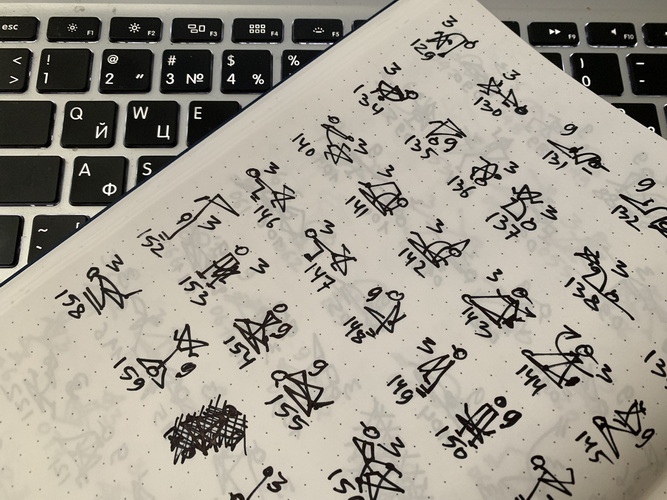 esc F1 F2 F3 F4 F5 F9 F10
< ! @ # $ % ) —
> 1 2 " 3 № 4 % 0 -
Q Й W Ц E
A Ф S
~
129 3
134 3 130 3
140 3 135 9 131 9
146 3 141 3 136 3 137 3 132 9
152 3 147 3 142 3 138 3
158 3 153 3 148 9 143 3
159 9 154 9 149 3 144 3
155 9 150 9 145 9
3 3